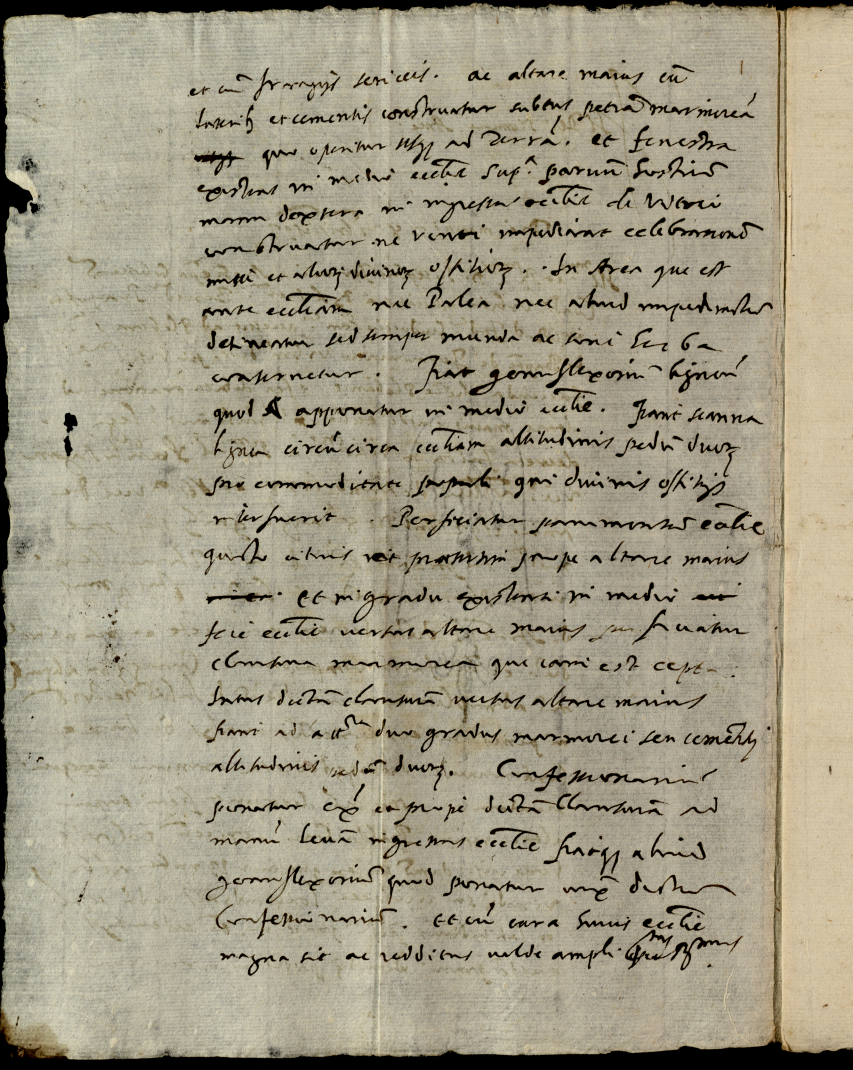 et cũ frragijs sericeis. ac altare maius cũ
laterib et cementis construatur subtus petrã marmoreã
quo operitur usq ad terrã. et fenestra
existens in medio ecclie sup.ᵃ parvũ hostiũ
manu dextera in ingressu ecclie de vitrei
construatur ne venti impediant celebrationẽ
misse et alioꝝ divinoꝝ offitioꝝ. In Area que est
ante eccliam nec Palea nec aliud impedimẽtũ
detineatur sed semper munda ac
conservetur. Fiat genuflexoriũ ligneũ
quod apponatur in medio ecclie. Fiant scanna
lignea circũcirca eccliam altitudinis pedũ duoꝝ
pro commoditate populi qui divinis offitijs
interfuerit. Perficiatur pavimentũ ecclie
prope altare maius
et in gradu existenti in medio
ecclie versus altare maius perficiatur
clausura marmorea que iam est cepta.
Intus dictã clausurã versus altare maius
fiant ad duo gradus marmorei seu cementij
altitudinis pedũ duoꝝ. Confessionariũ
ponatur ex prope dictã Clausurã ad
manũ levã ingressus ecclie fiatq aliud
genuflexoriũ quod ponatur iux dictũ
Confessionariũ. et cũ cura huius ecclie
magna sit ac redditus valde ampli